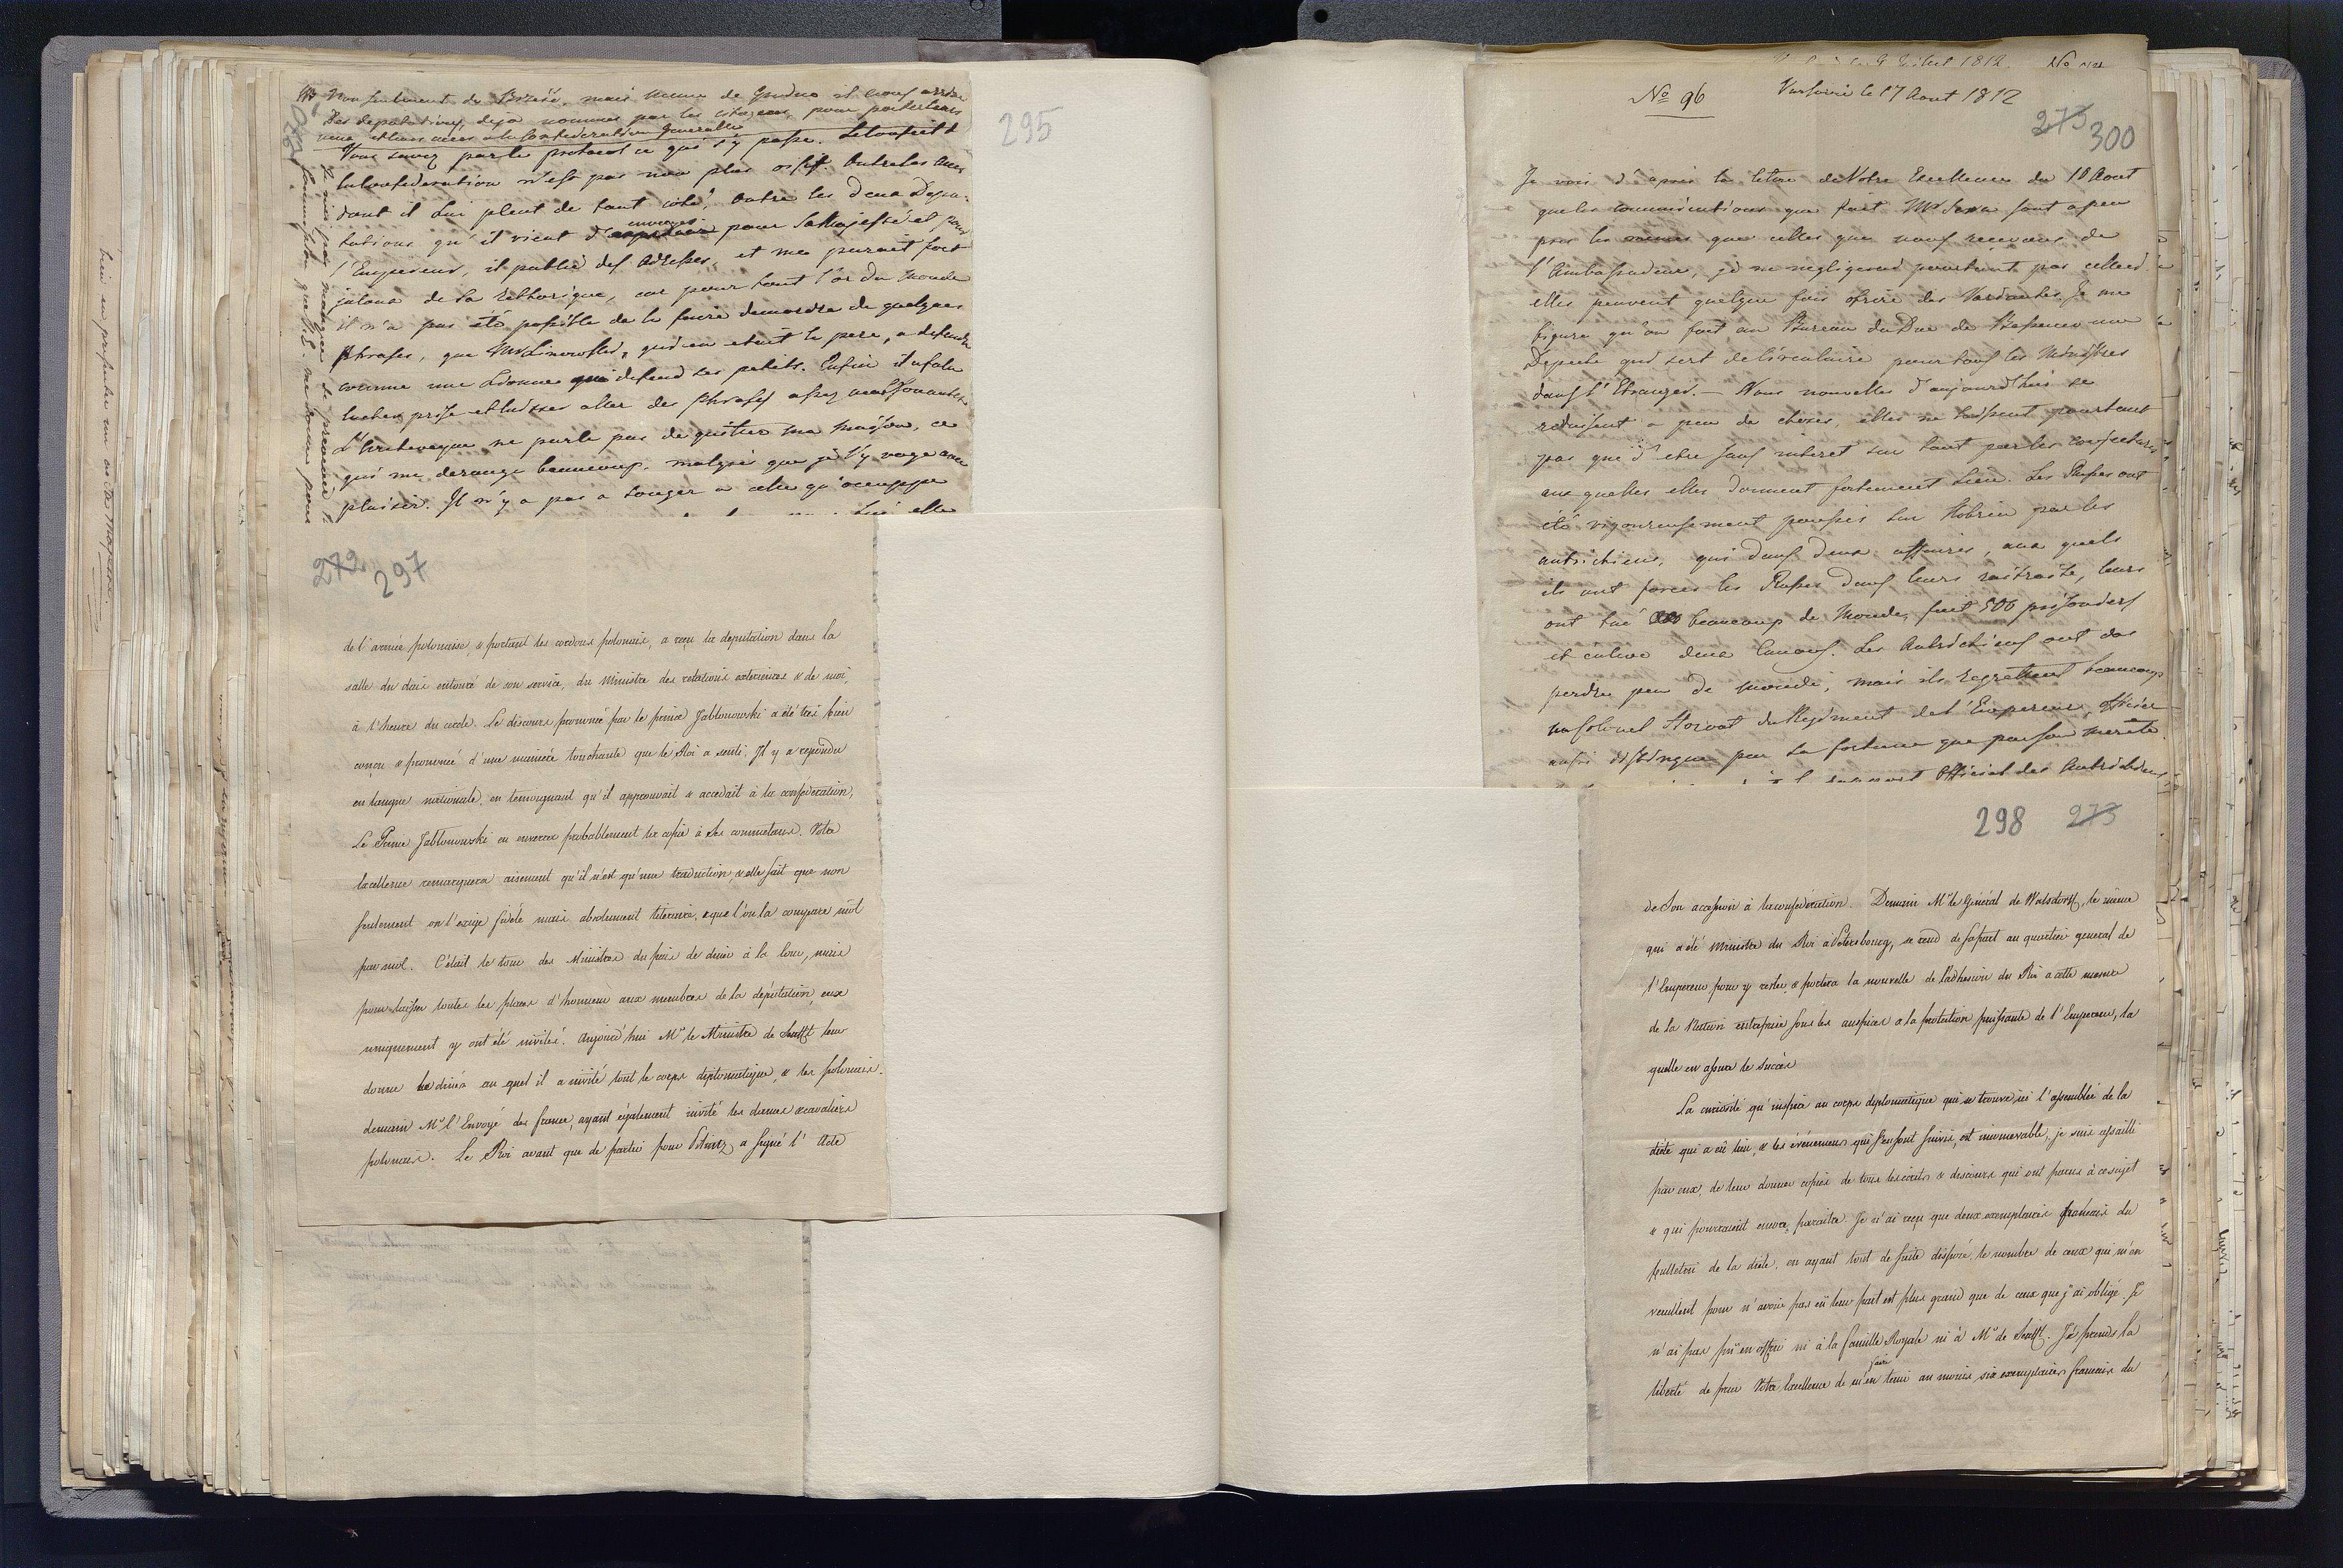 Non seulement de mais meme de Grodno il nous arrive
des deputations deja nommés par les citoyens pour porter leurs
à la Confederation Generalle
Vous savez par le protocol ce qui s'y passe. Le Conseil d
la Confederation n'est pas non plus oisif. Outre les
dont il Lui pleut de tout coté, outre les deux Depu-
tations qu'il vient d' envoyer pour Sa Majesté et pour
l'Empereur, il publie des Adresses, et me parait fort
jaloux de sa Rethorique, car pour tout l'or du Monde
il n'a pas été possible de le faire demordre de quelques
phrases, que Mr Linowski, qui en etait le pere, a defendu
comme une Lionne qui defend ses petits. Enfin il a falu
lacher prise et laisser aller des phrases assez
L'Archeveque ne parle pas de quitter ma maison, ce
qui me derange beaucoup, malgré que je l'y voye avec
plaisir. Il n'y a pas a songer a celle qu'occuppe
295
272 297
de l'armée polonaise, & portant les cordons polonais, a reçu la deputation dans la
salle du dais entouré de son service, du Ministre des relations exterieures & de moi,
à l'heure du cercle. Le discours prononcé par le prince Jablonowski a été très bien
conçu & prononcé d'une manière touchante que le Roi a senti. Il y a repondu
en langue nationale, en temoignant qu'il approuvait & accedait à la confédération,
Le Prince Jablonowski en enverra probablement la copie à Ses commetans. Votre
Excellence remarquera aisement qu'il n'est qu'une traduction, & elle sait que non
seulement on l'exige fidèle mais absolument literaire, & que l'on la compare mot
par mot. C'était le tour des Ministres du païs de diner à la Cour, mais
pour laisser toutes les places d'honneur aux membres de la députation, eux
uniquement y ont été invités. Aujourd'hui Mr le Ministre de Senfft leur
donne diner au quel il a invité tout le corps diplomatique, & les polonais.
demain Mr l'Envoyé de france, ayant également invité les dames & cavaliers
polonais. Le Roi avant que de partir pour a signé l'Acte
No 96
Varsovie le 17 Aout 1812
273 300
Je vois d'apres la lettre de Votre Excellence du 10 Aout
que les communications que fait Mr Serra sont a peu
pres les memes que celles que nous recevons de
l'Ambassadeur, je ne negligerai pourtant pas celles ci
elles peuvent quelque fois ofrir des Variantes. Je me
figure qu'on fait au Bureau du Duc de Bassano une
Depeche qui sert de Circulaire pour tous les Ministres
dans l'Etranger. — Nous nouvelles d'aujourdhui se
reduisent a peu de choses, elles ne laissent pourtant
pas que d'etre sans interet sur tout par les conjectures
aux quelles elles donnent fortement Lieu. Les Russes ont
été vigoureusement poussés sur Kobrin par les
autrichiens, qui dans deux affaires, aux quels
ils ont forcés les Russes dans leurs raitraite, leurs
ont tué beaucoup de Monde, fait 500 prisoniers
et enlevé deux Canons. Les Autrichiens ont du
perdre peu de monde, mais ils regrettent beaucoup
un Colonel Horvat du Regiment de l'Empereur, officier
aussi distingué par sa fortune que par son merite.
298 273
de Son accession à la confédération. Demain Mr le Général de Watzdorff, le même
qui a été Ministre du Roi à Petersbourg, se rend de sa part au quartier general de
l'Empereur pour y rester, & portera la nouvelle de l'adhesion du Roi a cette mesure
de la Nation entreprise sous les auspices & la protection puissante de l'Empereur, la
quelle en assure le succès
La curiosité qu'inspire au corps diplomatique qui se trouve ici l'assemblée de la
diète qui a eû lieu, & les événemens qui s'en sont suivis, est innonevable, je suis assailli
par eux, de leur donner copies de tous les écrits & discours qui ont parus à ce sujet
& qui pourraient encore paraitre. Je n'ai reçu que deux exemplaires français du
bulletin de la diète, en ayant tout de suite disposé, le nombre de ceux qui m'en
veuillent pour n'avoir pas eû leur part est plus grand que de ceux que j'ai obligé. Je
n'ai pas pû en offrir ni à la famille Royale ni à Mr de Senfft. J'é prends la
liberté de prier Votre Excellence de m'en faire tenir au moins six exemplaires français du